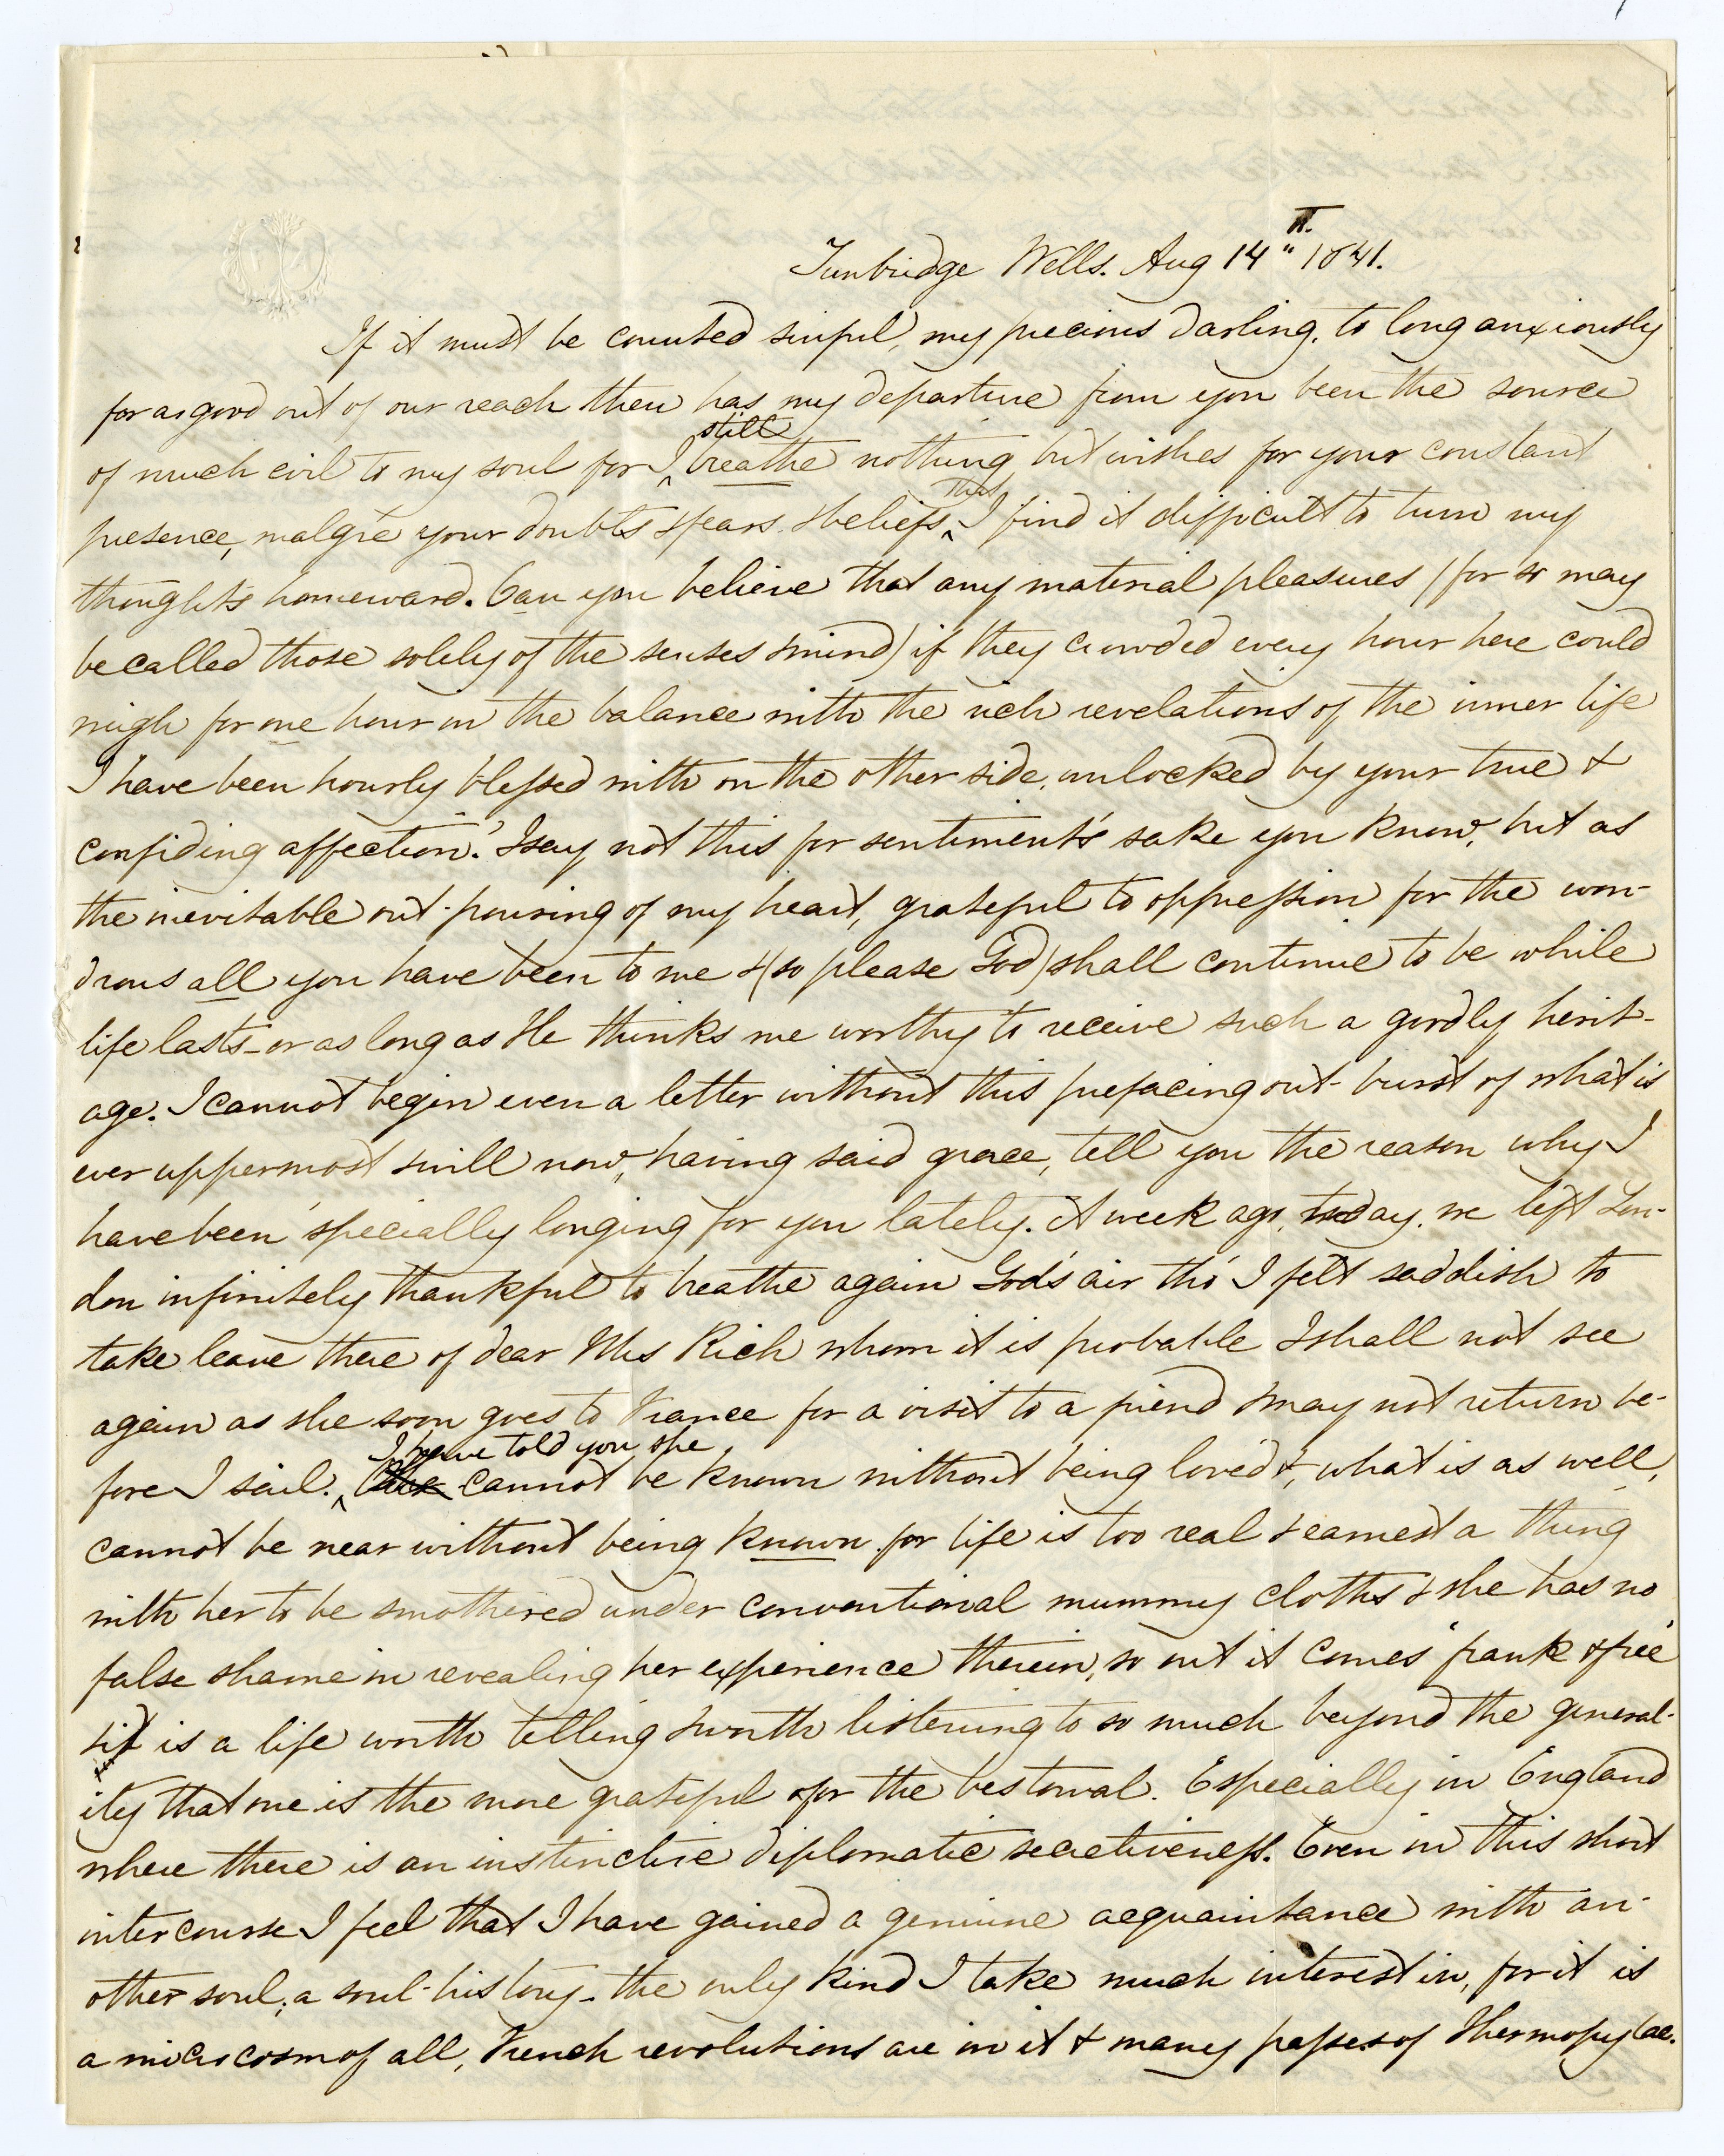 π.
Tunbridge Wells. Aug 14" 1841.
If it must be counted sinful, my precious darling, to long anxiously
for a good out of our reach then has my departure from you been the source
of much evil to my soul for I still breathe nothing but wishes for your constant
presence, malgré your doubts & fears & beliefs, Thus I find it difficult to turn my
thoughts homeward. Can you believe that any material pleasures (for so may
be called those solely of the senses & mind) if they crowded every hour here could
weigh for one hour in the balance with the rich revelations of the inner life
I have been hourly blessed with on the other side, unlocked by your true &
confiding affection? I say not this for sentiment's sake you know, but as
the inevitable out-pouring of my heart, grateful to oppression for the won-
drous all you have been to me & (so please God) shall continue to be while
life lasts - or as long as He thinks me worthy to receive such a goodly herit-
age. I cannot begin even a letter without this prefacing out-burst of what is
ever uppermost & will now, having said grace, tell you the reason why I
have been 'specially longing for you lately. A week ago, today, we left Lon-
don infinitely thankful to breathe again God's air tho' I felt saddish to
take leave there of dear Mrs Rich whom it is probable I shall not see
again as she soon goes to France for a visit to a friend & may not return be-
fore I sail. I have told you, she cannot be known without being loved &, what is as well,
cannot be near without being known for life is too real & earnest a thing
with her to be smothered under conventional mummy cloths & she has no
false shame in revealing her experience therein, so out it comes "frank & free"
& it is a life worth telling & worth listening to so much beyond the general-
ity that one is the more grateful for the bestowal. Especially in England
where there is an instinctive diplomatic secretiveness. Even in this short
intercourse I feel that I have gained a genuine acquaintance with an-
other soul; a soul-history - the only kind I take much interest in, for it is
a microcosm of all, French revolutions are in it & many passes of Thermopylae.